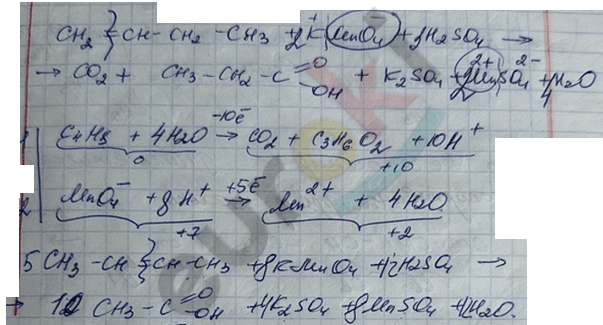 CH2 = CH - CH2 - CH3 + 2KMnO4 + 3H2SO4 →
→ CO2 + CH3 - CH2 - C =O -OH + K2SO4 + 2MnSO4 + 4H2O
1 | C4H8 + 4H2O -10ē → CO2 + C3H6O2 + 10H+
0 +10
2 | MnO4- + 8H+ +5ē → Mn2+ + 4H2O
+7 +2
5CH3 - CH = CH - CH3 + 8KMnO4 + 12H2SO4 →
→ 10 CH3 - C =O -OH + 4K2SO4 + 8MnSO4 + 12H2O.